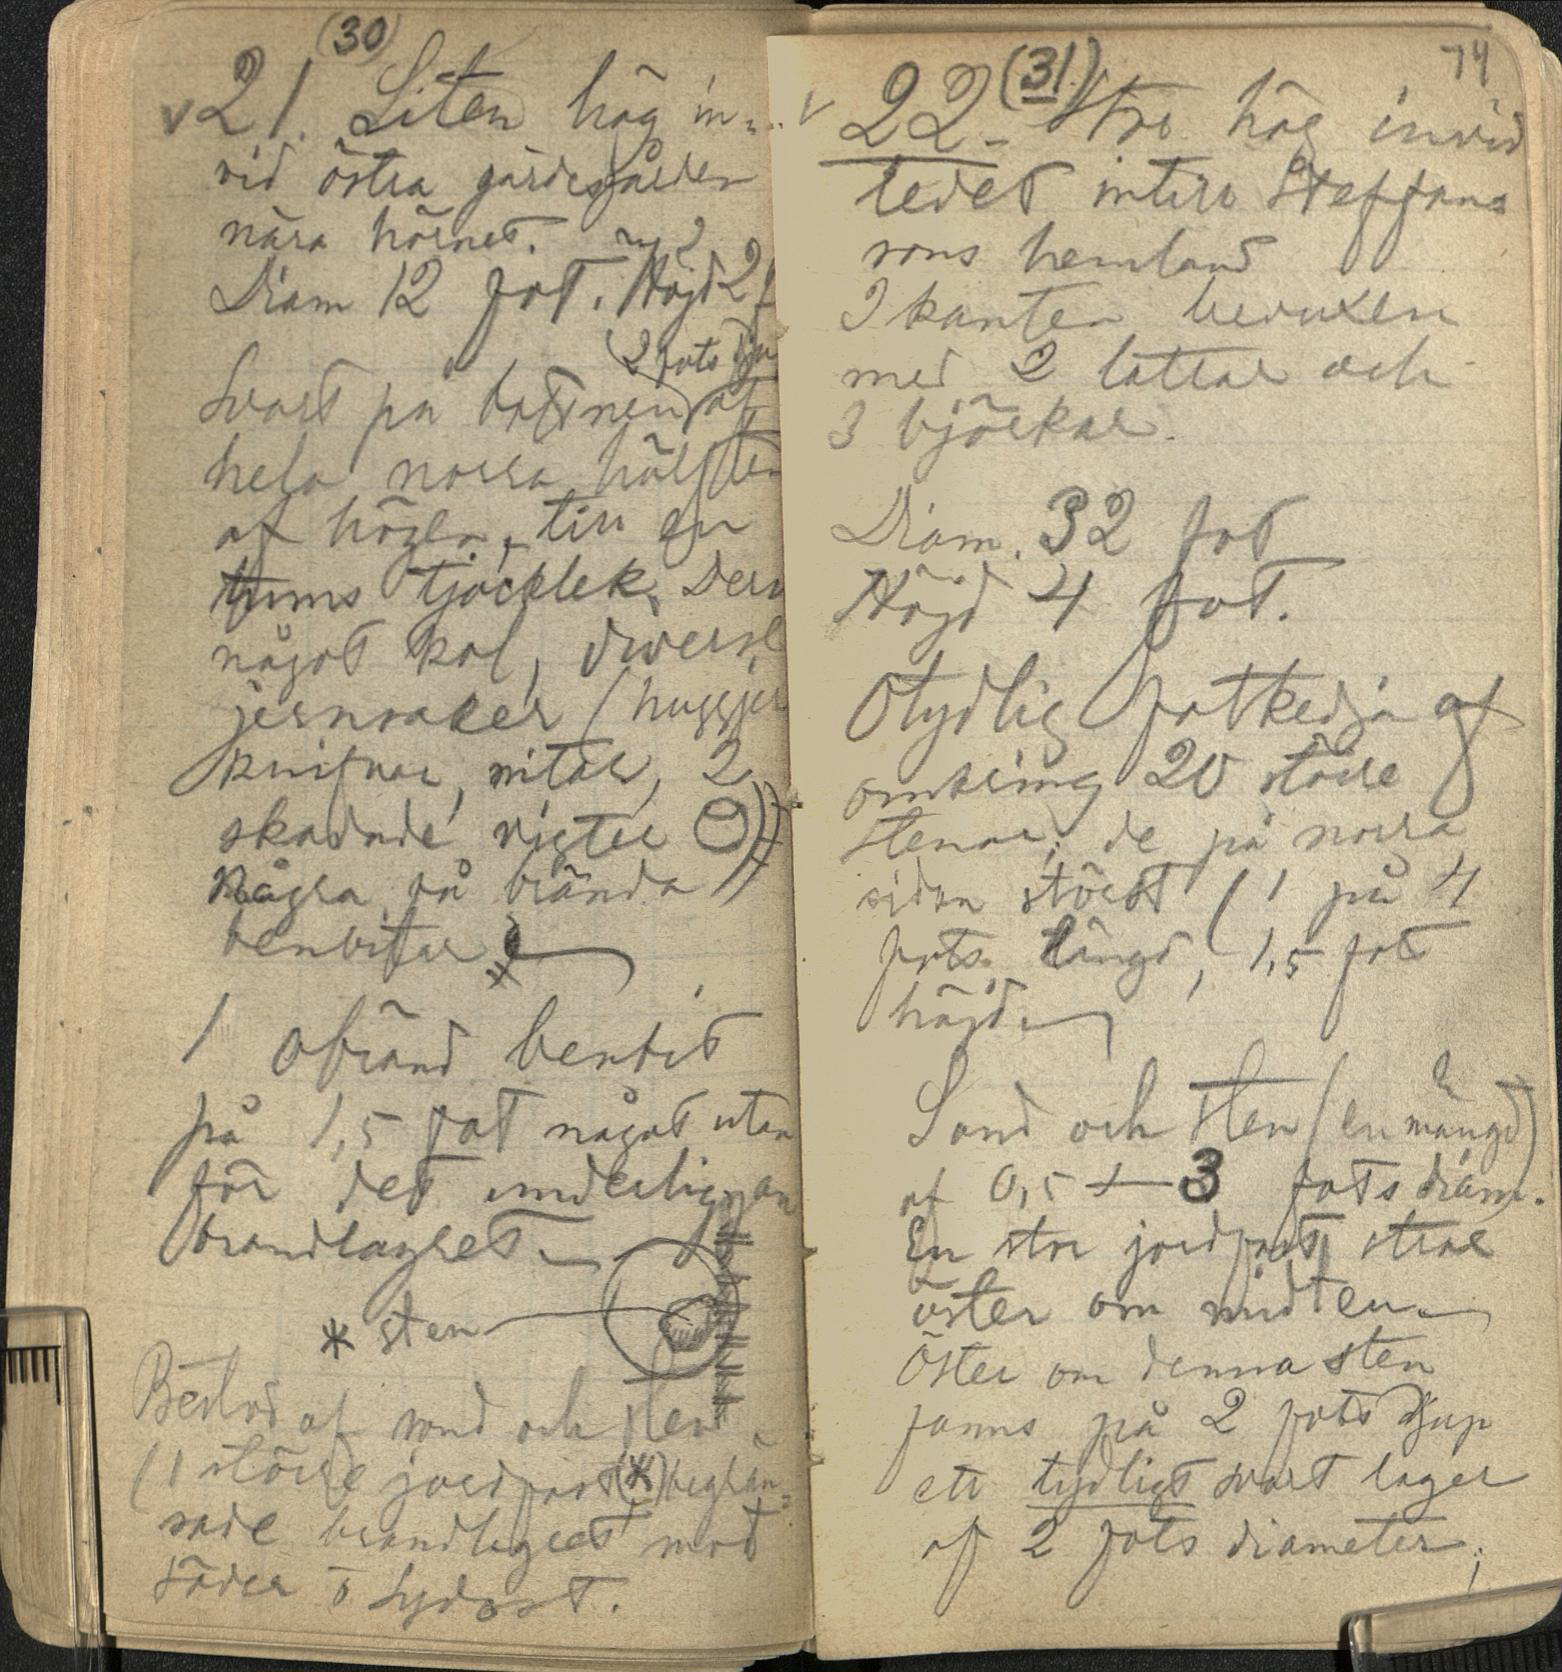 (30)
v 21. Liten hög in-
vid östra gärdesgården
nära hörnet.
Diam 12 fot. Höjd 2 f
(2 fots dju
Svart på bottnen af
hela norra hälften
af högen, till en
tums tjocklek, Deri
något kol, diverse
jernsaker (huggjer
knifvar, nitar, 2
skadade vigter
Några få brända
benbitar
1 obränd benbit
på 1,5 fot något utan
för det underliggan
brandlagret.
* sten
Bestod af sand och sten
(1 större jordfast (*) begrän-
sade brandlagret mot
söder o sydost.
74
(31.)
v 22. Stor hög invid
ledet intill Steffans
sons hemland
I kanten bevuxen
med 2 tallar och
3 björkar.
Diam. 32 fot
Höjd 4 fot.
Otydlig fotkedja af
omkring 20 större
stenar, de på norra
sidan störst (1 på 4
fots längd, 1,5 fots
höjd
Sand och sten (en mängd)
af 0,5 - 3 fots diam.
En stor jordfast strax
öster om midten.
Öster om denna sten
fanns på 2 fots djup
ett tydligt svart lager
af 2 fots diameter,